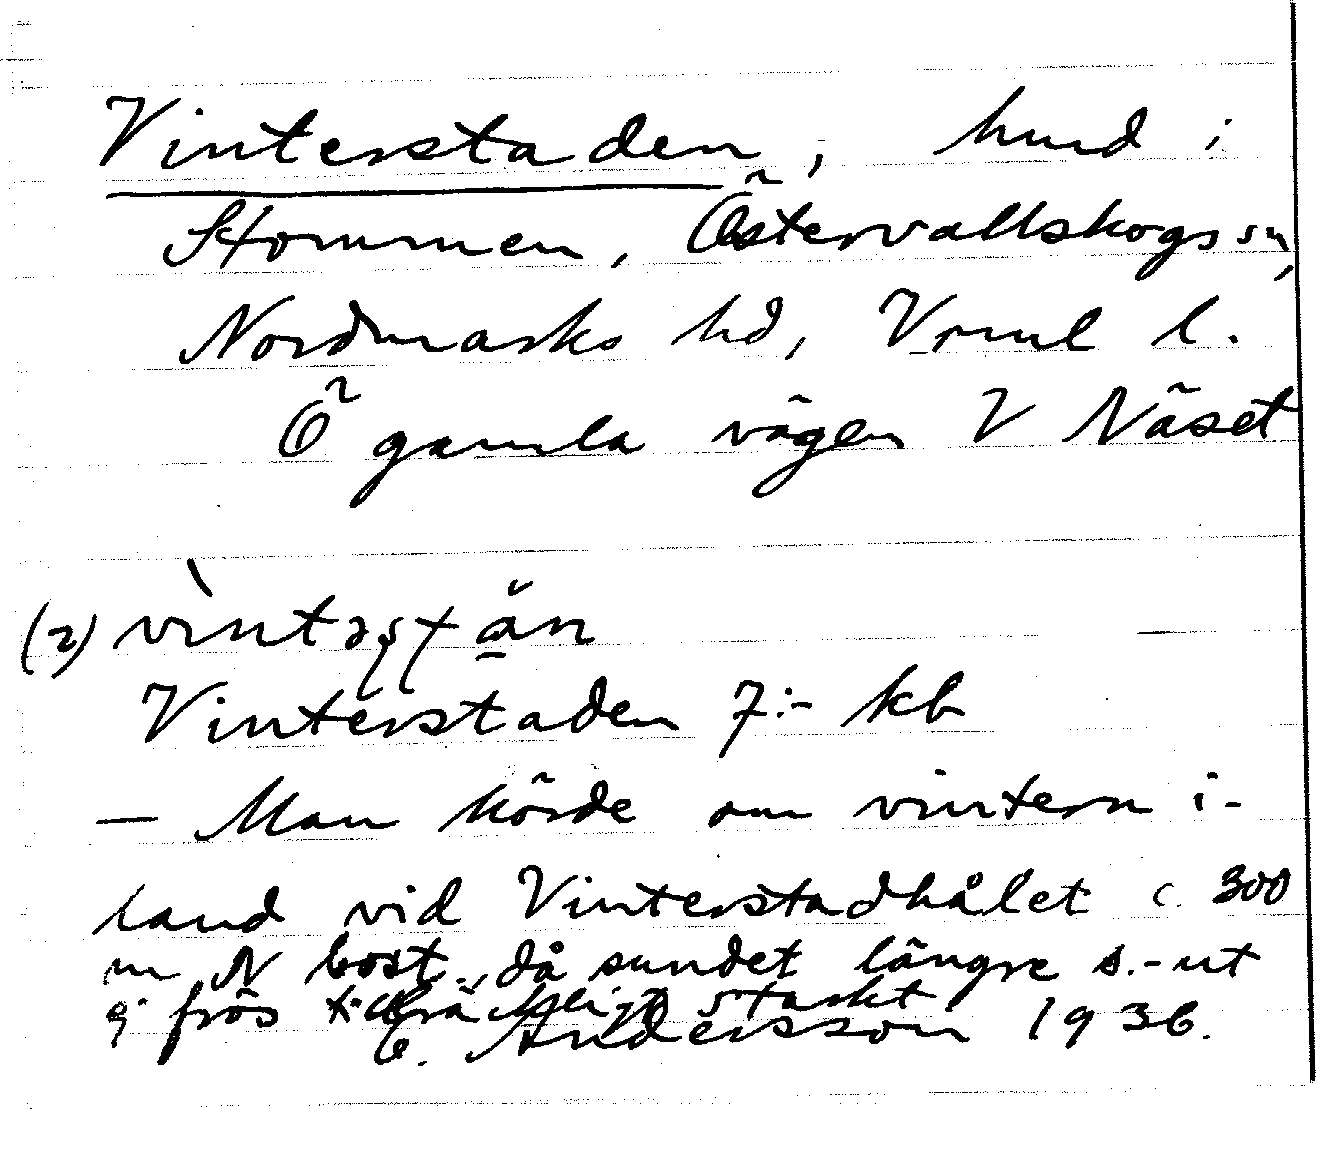 Vinterstaden, hmd i
Stommen, Östervallskogs sn,
Nordmarks hd, Vrml l.
Ö gamla vägen V Näset
(2) vìntəʂʈän
Vinterstaden 7:- kb
— Man körde om vintern i-
land vid Vinterstadhålet c. 300
m N bost., då sundet längre s.-ut
ej frös tillräckligt starkt
Andersson 1936.